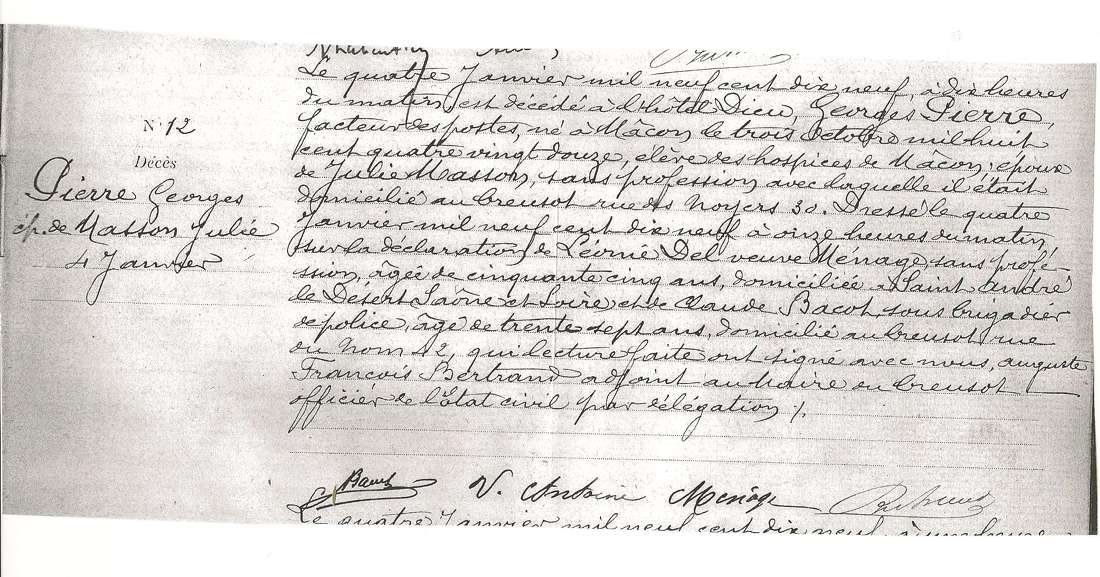 N° 12
Décès
Pierre Georges
ép. de Masson Julie
4 Janvier
Le quatre Janvier mil neuf cent dix neuf, à dix heures
du matin, est décédé à l'hôtel Dieu, Georges Pierre,
facteur des postes, né à Mâcon le trois Octobre mil huit
cent quatre vingt douze, élève des hospices de Mâcon; époux
de Julie Masson, sans profession avec laquelle il était
domicilié au Creusot rue des Noyers 30. Dressé le quatre
Janvier mil neuf cent dix neuf à onze heures du matin,
sur la déclaration de Léonie Del veuve Menage, sans profé-
ssion, âgée de cinquante cinq ans, domiciliée à Saint André
le Désert Saône et Loire et de Claude Bacot, sous brigadier
de police, âgé de trente sept ans, domicilié au Creusot rue
du 42, qui lecture faite ont signé avec nous, auguste
François Bertrand adjoint au Maire du Creusot
officier de l'Etat civil par délégation ;.
V. Antoine Menage
Le quatre Janvier mil neuf cent dix neuf, à une heure